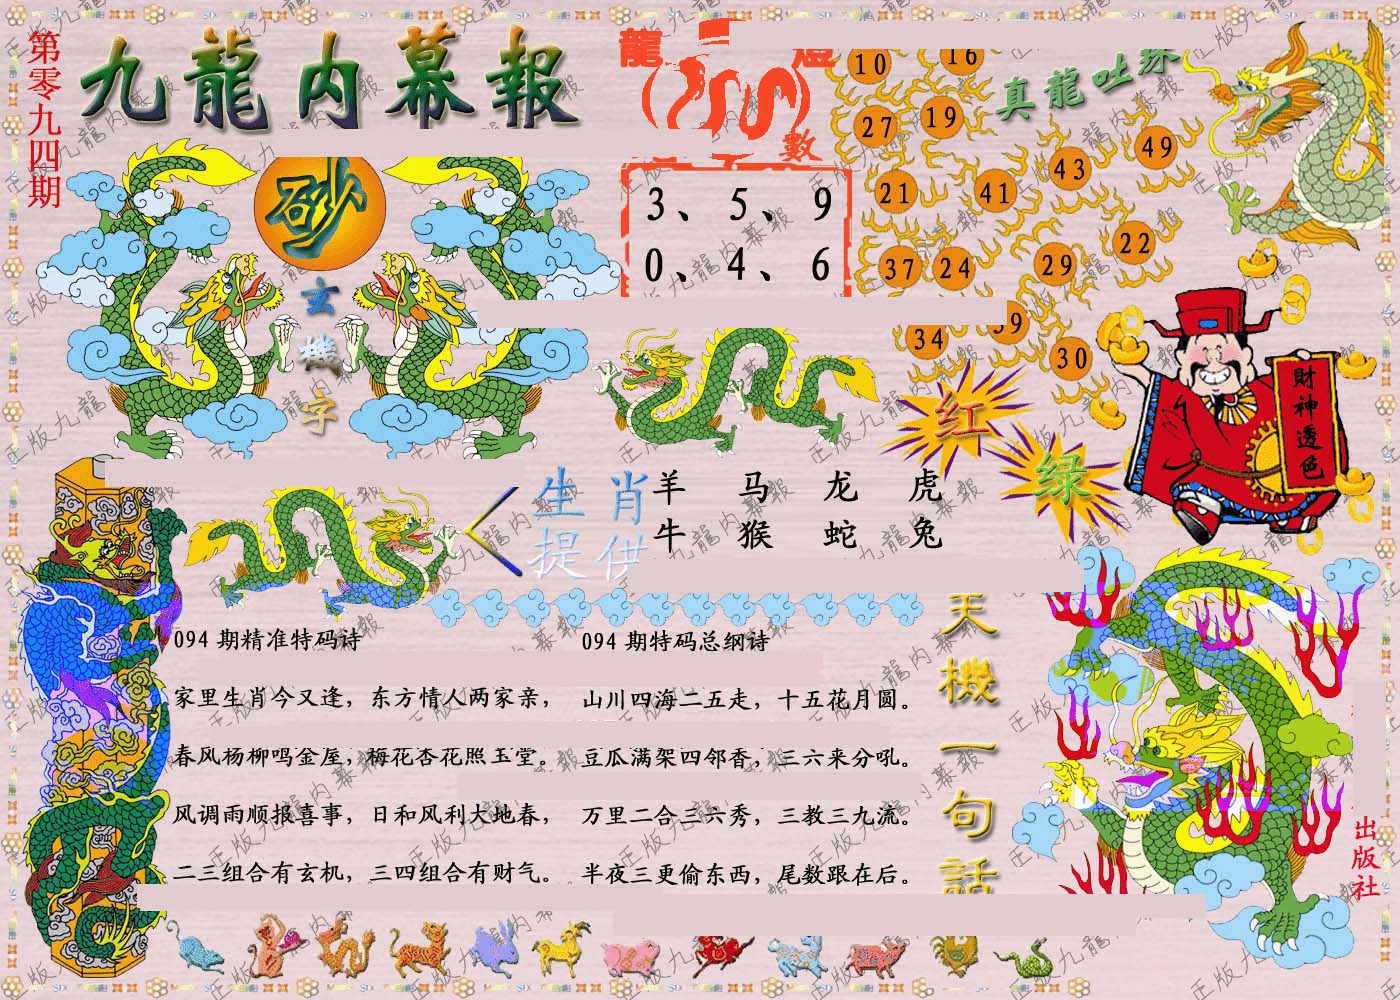 第零九四期
九龍内幕報
龍
數
真龍吐珠
10
16
27
19
21
41
43
49
37
24
29
22
34
30
3、5、9
0、4、6
砂
玄機字
红
绿
財神透色
生肖
提供
羊 马 龙 虎
牛 猴 蛇 兔
094 期精准特码诗
家里生肖今又逢，东方情人两家亲，
春风杨柳鸣金屋，梅花杏花照玉堂。
风调雨顺报喜事，日和风利大地春，
二三组合有玄机，三四组合有财气。
094 期特码总纲诗
山川四海二五走，十五花月圆。
豆瓜满架四邻香，三六来分吼。
万里二合三六秀，三教三九流。
半夜三更偷东西，尾数跟在后。
天機一句話
出版社
正版九龍内幕報